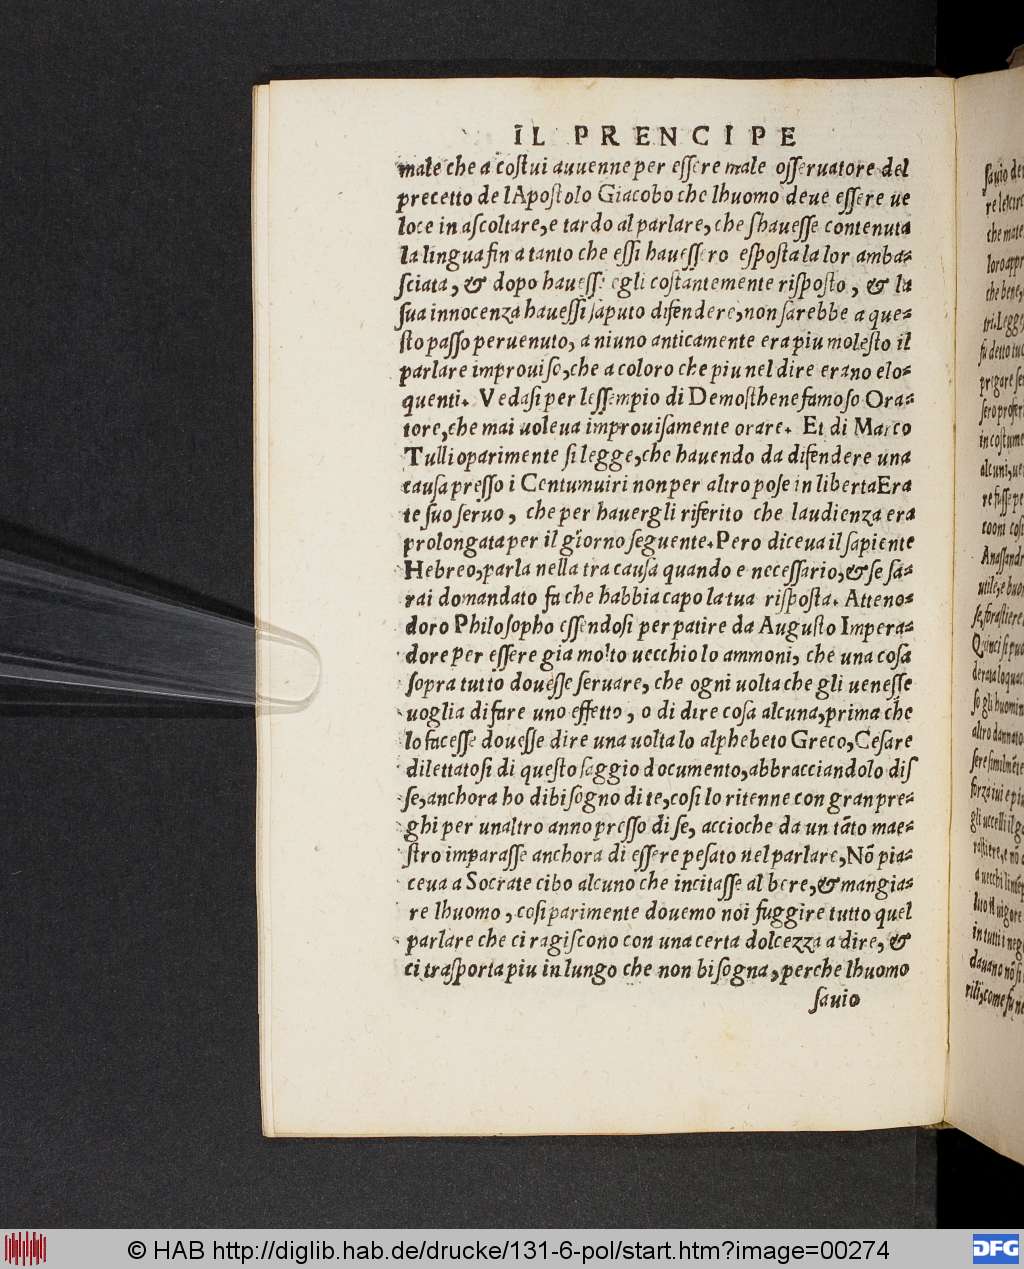 IL PRENCIPE
male che a coſtui auuenne per eſſere male oſſeruatore del
precetto de lApoſtolo Giacobo che lhuomo deue eſſere ue
loce in aſcoltare, e tardo al parlare, che ſhaueſſe contenuta
la lingua fin a tanto che eſſi haueſſero eſpoſta la lor amba-
ſciata, & dopo haueſſe egli coſtantemente riſpoſto, & la
ſua innocenza haueſſi ſaputo difendere, non ſarebbe a que-
ſto paſſo peruenuto, a niuno anticamente era piu moleſto il
parlare improuiſo, che a coloro che piu nel dire erano elo-
quenti. Vedaſi per leſſempio di Demoſthene famoſo Ora-
tore, che mai uoleua improuiſamente orare. Et di Marco
Tullio parimente ſi legge, che hauendo da difendere una
cauſa preſſo i Centumuiri non per altro poſe in liberta Era
te ſuo ſeruo, che per hauergli riferito che laudienza era
prolongata per il giorno ſeguente. Pero diceua il ſapiente
Hebreo, parla nella tra cauſa quando e neceſſario, & ſe ſa-
rai domandato fa che habbia capo la tua riſpoſta. Atteno-
doro Philoſopho eſſendoſi per patire da Auguſto Impera-
dore per eſſere gia molto uecchio lo ammoni, che una coſa
ſopra tutto doueſſe ſeruare, che ogni uolta che gli ueneſſe
uoglia di fare uno effetto, o di dire coſa alcuna, prima che
lo faceſſe doueſſe dire una uolta lo alphebeto Greco, Ceſare
dilettatoſi di queſto ſaggio documento, abbracciandolo diſ
ſe, anchora ho dibiſogno di te, coſi lo ritenne con gran pre-
ghi per unaltro anno preſſo di ſe, accioche da un tāto mae-
ſtro imparaſſe anchora di eſſere peſato nel parlare, Nō pia-
ceua a Socrate cibo alcuno che incitaſſe al bere, & mangia-
re lhuomo, coſi parimente douemo noi fuggire tutto quel
parlare che ci ragiſcono con una certa dolcezza a dire, &
ci traſporta piu in lungo che non biſogna, perche lhuomo
ſauio
© HAB http://diglib.hab.de/drucke/131-6-pol/start.htm?image=00274
DFG